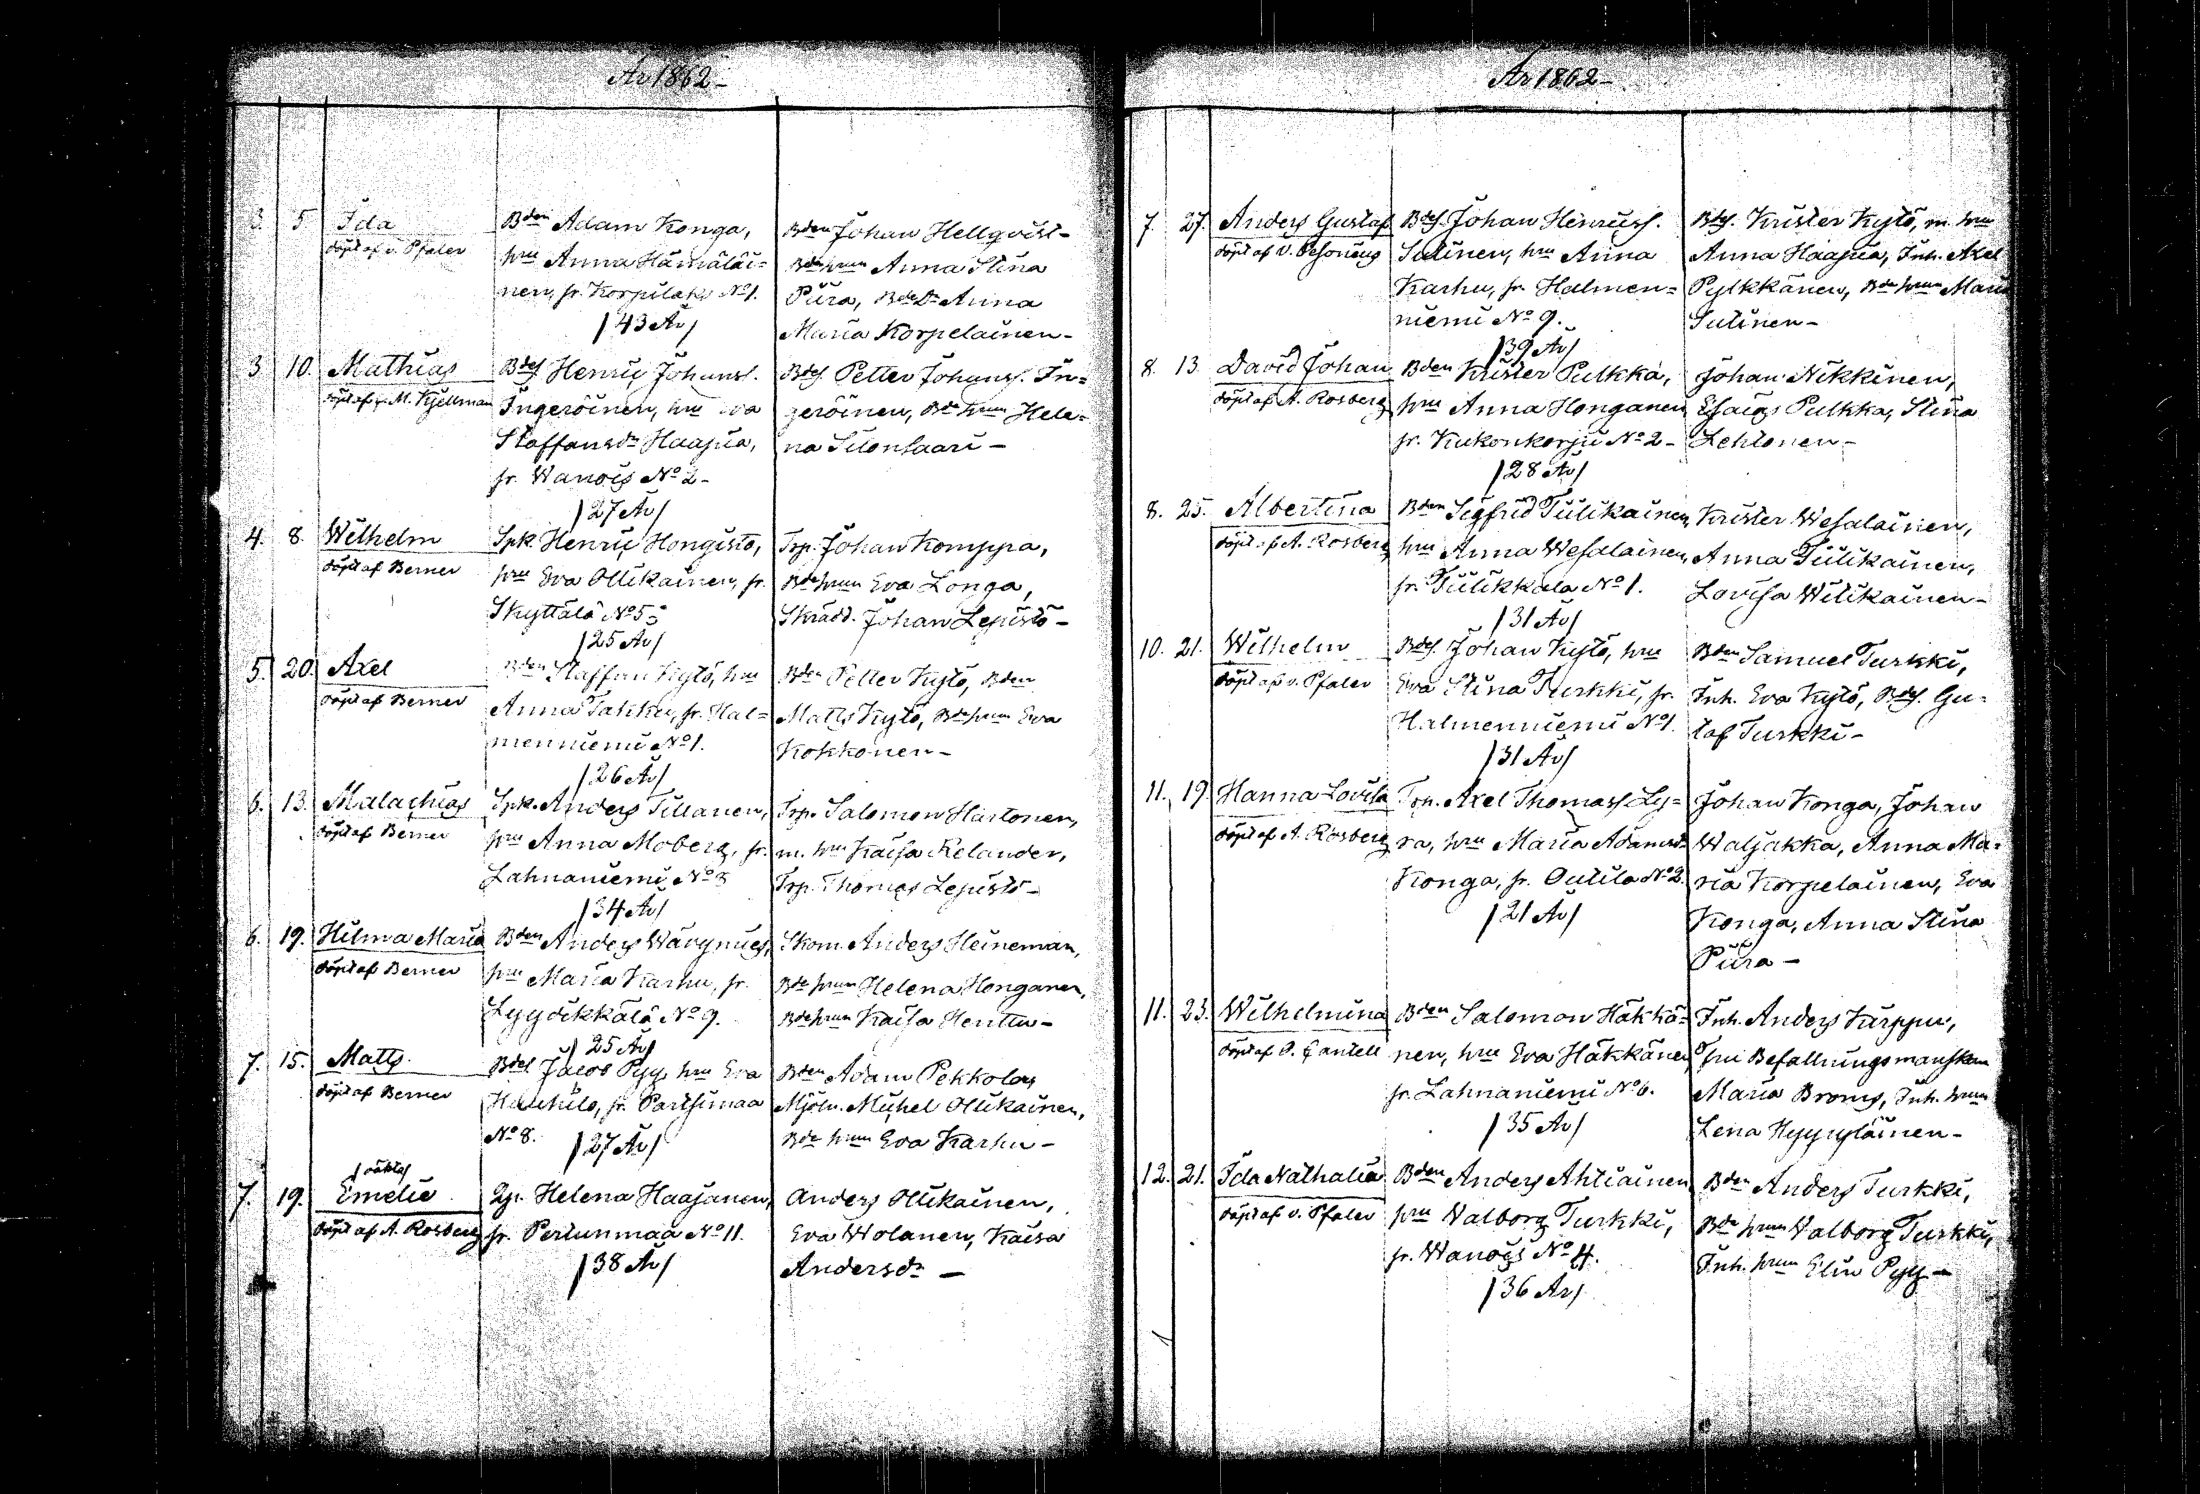 År 1862 -
3. 5 Ida
döpt af v. Pfaler
Bden Adam Konga,
hru Anna Hämäläi=
nen, fr. Korpilaks No 1.
/43 År/
Bden Johan Hellqvist-
Bde hrun Anna Stina
Piira, Bde Dr Anna
Maria Korpelainen-
3 10. Mathias
döpt af M. Kjellman
Bdes. Henric Johanss.
Ingeröinen, hru Eva
Staffansdr Haapia,
fr. Wanois No 2-
/27 År/
Bdes. Petter Johanss. In=
geröinen, Bde hrun Hele=
na Silonsaari -
4. 8. Wilhelm
döpt af Berner
Spk. Henric Hongisto,
hru Eva Ollikainen, fr.
Skyttälä No 5-
/25 År/
Trp. Johan Komppa,
Bde hrun Eva Longa,
Skrädd. Johan Lepistö-
5. 20. Axel
döpt af Berner
Bden Staffan Kytö, hru
Anna Takku, fr. Hal=
menniemi No 1.
/26 År/
Bden Petter Kytö, Bden
Matts Kytö, Bde hrun Eva
Kokkonen-
6. 13. Malachias
döpt af Berner
Spk. Anders Tillanen,
hru Anna Moberg, fr.
Lahnaniemi No 8
/34 År/
Trp. Salomon Hartonen,
m. hru Kaisa Relander,
Trp. Thomas Lepistö-
6. 19. Hilma Maria
döpt af Berner
Bden Anders Wärynies,
hru Maria Karhu, fr.
Lyydikkälä No 9.
/25 År/
Skom. Anders Heineman,
Bde hrun Helena Honganen,
Bde hrun Kaisa Henttu-
7. 15. Matts.
döpt af Berner
Bdes Jacob Pyy, hru Eva
fr. Partsimaa
No 8. /27 År/
Bden Adam Pekkola,
Mjöln. Michel Ollikainen,
Bde hrun Eva Karhu-
/oäkta/
7. 19. Emelie
döpt af A. Rosberg
Pg. Helena Haajanen,
fr. Pertunmaa No 11.
/38 År/
Anders Ollikainen,
Eva Wolanen, Kaisa
Andersdr -
År 1862 -
7. 27. Anders Gustaf
döpt af v. Pesonius
Bdes. Johan Henricss.
Sutinen, hru Anna
Karhu, fr. Halmen=
niemi No 9.
/39 År/
Bdes. Krister Kytö, m. hru
Anna Haapia, Inh. Axel
Pylkkänen, Bde hrun Maria
Sutinen-
8. 13. David Johan
döpt af A. Rosberg
Bden Krister Pulkka,
hru Anna Honganen
fr. Kukonkorpi No 2-
/28 År/
Johan Nikkinen,
Esaias Pulkka, Stina
Lehtonen-
8. 25. Albertina
döpt af A. Rosberg
Bden Sigfrid Tulikainen,
hru Anna Wesalainen,
fr. Tulikkala No 1.
/31 År/
Krister Wesalainen,
Anna Tulikainen,
Lovisa Wilikainen-
10. 21. Wilhelm
döpt af v. Pfaler
Bdes. Johan Kytö, hru
Eva Stina Turkki, fr.
Halmenniemi No 1.
/31 År/
Bden Samuel Turkki,
Inh. Eva Kytö, Bdes. Gu=
taf Turkki-
11. 19. Hanna Lovisa
döpt af A. Rosberg
Trp. Axel Thomass Ly=
ra, hru Maria Adamsdr
Konga, fr. Outila No 2.
/21 År/
Johan Konga, Johan
Waljakka, Anna Ma=
ria Korpelainen, Eva
Konga, Anna Stina
Piira -
11. 23. Wilhelmina
döpt af P. Cantell
Bden Salomon Häkkä=
nen, hru Eva Häkkänen
fr. Lahnaniemi No 6.
/35 År/
Inh. Anders Kurppu,
Fru Befallningsmanskan
Maria Broms, Inh. hrun
Lena Hyyryläinen-
12. 21. Ida Nathalia
döpt af v. Pfaler
Bden Anders Ahtiainen
hru Walborg Turkki,
fr. Wanois No 4.
/36 År/
Bden Anders Turkki,
Bde hrun Walborg Turkki,
Inh. hrun Elin Pyy-